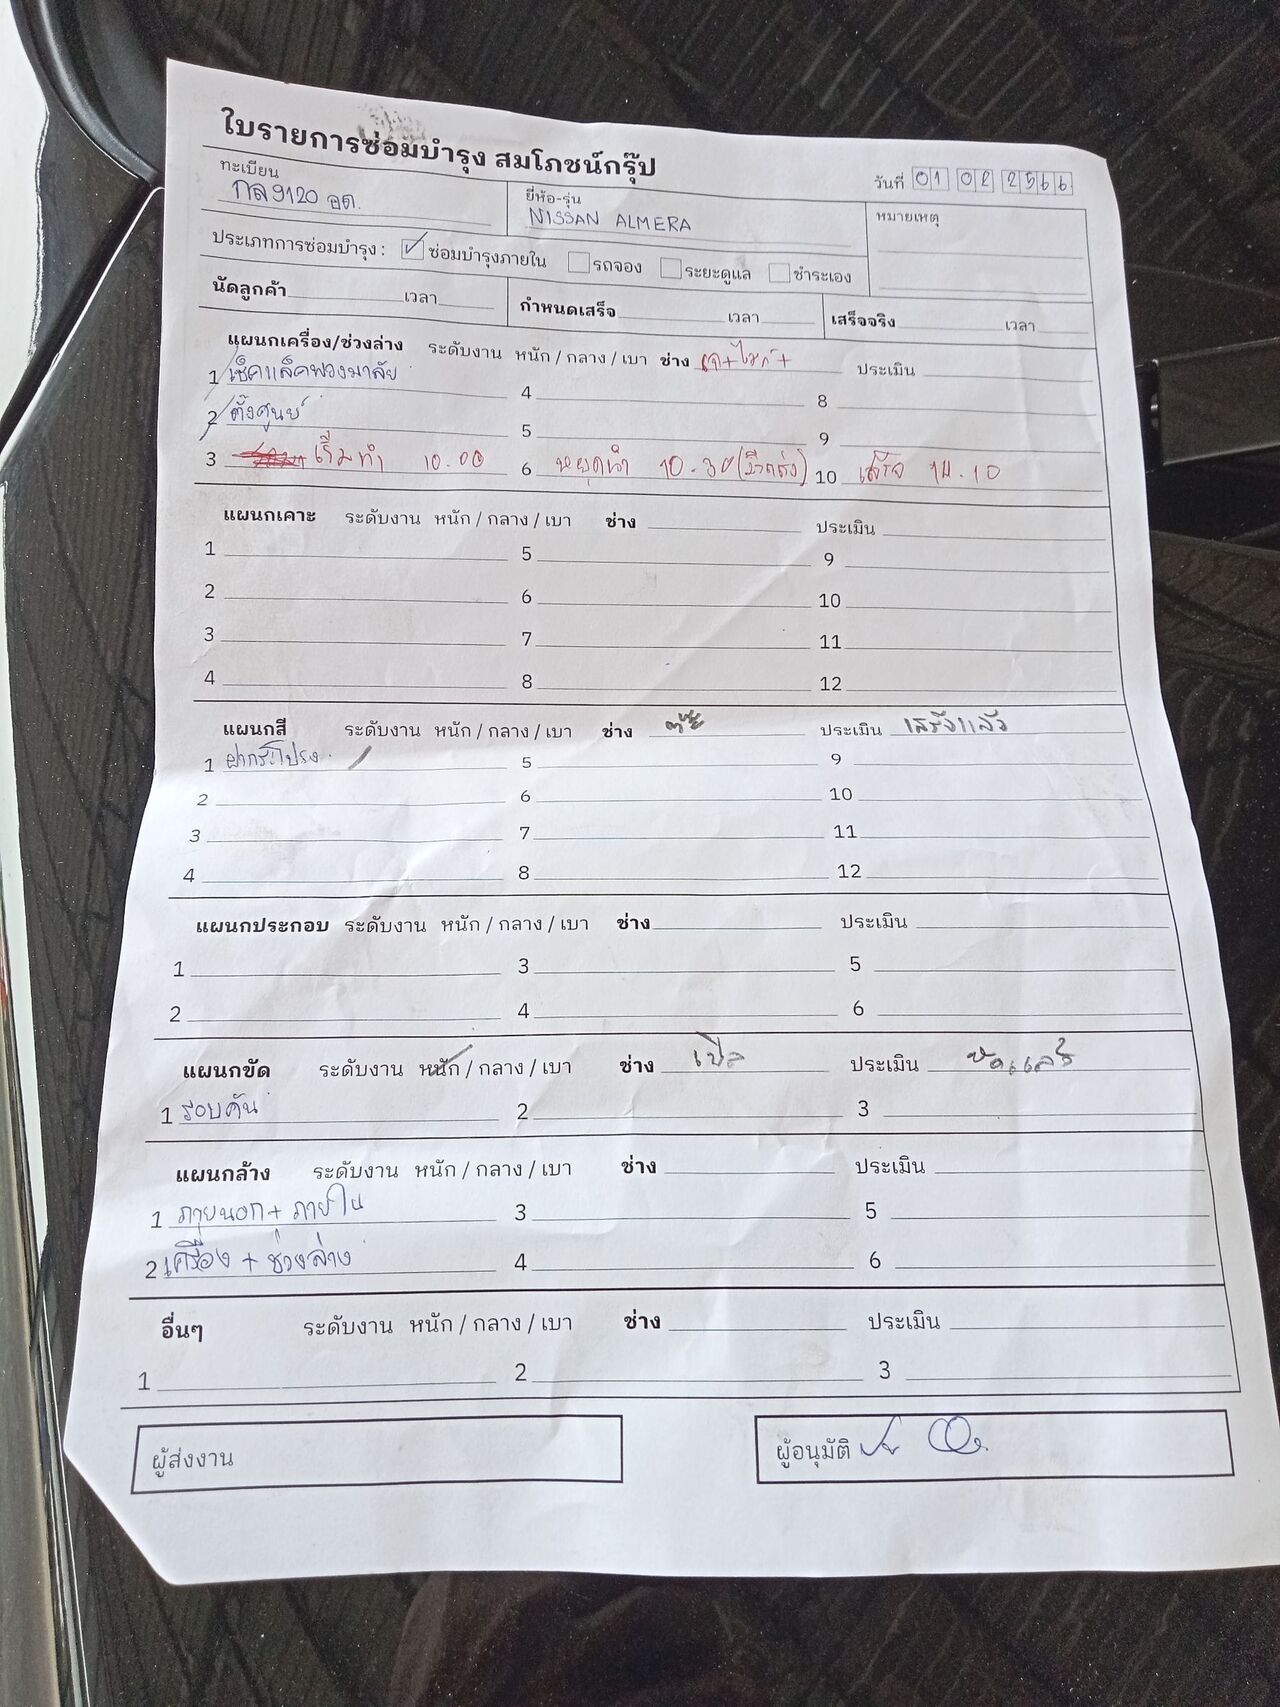 ใบรายการซ่อมบำรุง สมโภชน์กรุ๊ป
วันที่ 01 02 2566
ทะเบียน
กล 9120 อด.
ยี่ห้อ-รุ่น
NISSAN ALMERA
หมายเหตุ
ประเภทการซ่อมบำรุง : ✓ ซ่อมบำรุงภายใน รถจอง ระยะดูแล ชำระเอง
นัดลูกค้า เวลา กำหนดเสร็จ เวลา เสร็จจริง เวลา
แผนกเครื่อง/ช่วงล่าง ระดับงาน หนัก / กลาง / เบา ช่าง ประเมิน
1 เช็คแล็คพวงมาลัย 4 8
2 ตั้งศูนย์ 5 9
3 เริ่มทำ 10.00 6 หยุดทำ 10.30 10 เสร็จ 14.10
แผนกเคาะ ระดับงาน หนัก / กลาง / เบา ช่าง ประเมิน
1 5 9
2 6 10
3 7 11
4 8 12
แผนกสี ระดับงาน หนัก / กลาง / เบา ช่าง ประเมิน เสร็จแล้ว
1 ฝากระโปรง 5 9
2 6 10
3 7 11
4 8 12
แผนกประกอบ ระดับงาน หนัก / กลาง / เบา ช่าง ประเมิน
1 3 5
2 4 6
แผนกขัด ระดับงาน หนัก / กลาง / เบา ช่าง ประเมิน
1 รอบคัน 2 3
แผนกล้าง ระดับงาน หนัก / กลาง / เบา ช่าง ประเมิน
1 ภายนอก + ภายใน 3 5
2 เครื่อง + ช่วงล่าง 4 6
อื่นๆ ระดับงาน หนัก / กลาง / เบา ช่าง ประเมิน
1 2 3
ผู้ส่งงาน
ผู้อนุมัติ